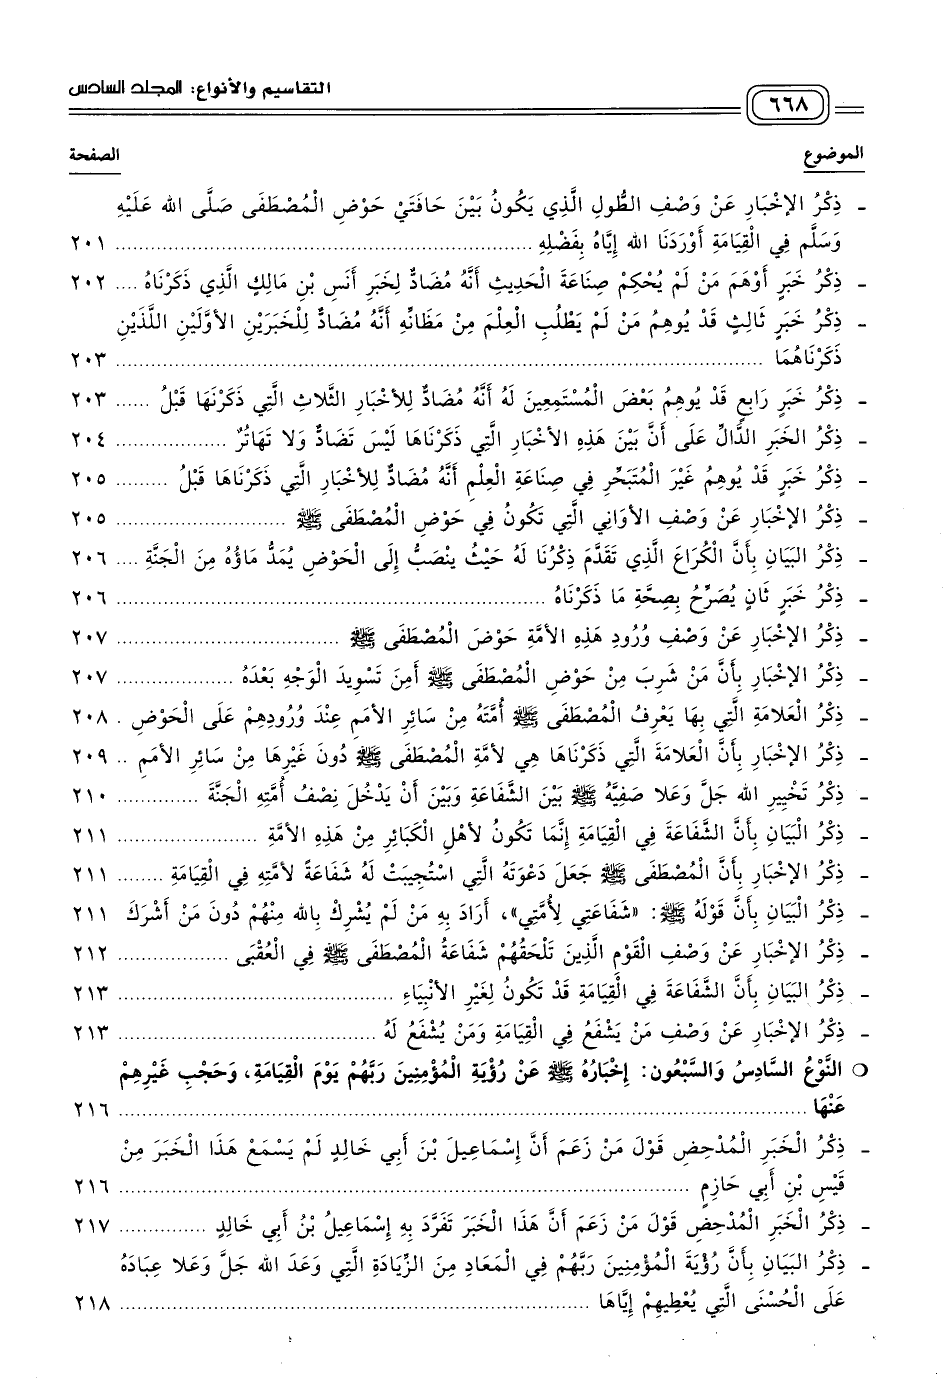 التقاسيم والأنواع: المجلد السادس
٦٦٨
الموضوع الصفحة
- ذِكْرُ الإخْبَارِ عَنْ وَصْفِ الطُّولِ الَّذِي يَكُونُ بَيْنَ حَافَتَيْ حَوْضِ الْمُصْطَفَى صَلَّى الله عَلَيْهِ
وَسَلَّم فِي الْقِيَامَةِ أَوْرَدَنَا الله إيَّاهُ بِفَضْلِهِ ........ ٢٠١
- ذِكْرُ خَبَرٍ أَوْهَمَ مَنْ لَمْ يُحْكِمْ صِنَاعَةَ الْحَدِيثِ أَنَّهُ مُضَادٌّ لِخَبَرِ أَنَسِ بْنِ مَالِكٍ الَّذِي ذَكَرْنَاهُ .... ٢٠٢
- ذِكْرُ خَبَرٍ ثَالِثٍ قَدْ يُوهِمُ مَنْ لَمْ يَطْلُبِ الْعِلْمَ مِنْ مَظَانِّهِ أَنَّهُ مُضَادٌّ لِلْخَبَرَيْنِ الأوَّلَيْنِ اللَّذَيْنِ
ذَكَرْنَاهُمَا ........ ٢٠٣
- ذِكْرُ خَبَرٍ رَابِعٍ قَدْ يُوهِمُ بَعْضَ الْمُسْتَمِعِينَ لَهُ أَنَّهُ مُضَادٌّ لِلأخْبَارِ الثَّلاثِ الَّتِي ذَكَرْنَهَا قَبْلُ ...... ٢٠٣
- ذِكْرُ الخَبَرِ الدَّالِّ عَلَى أَنَّ بَيْنَ هَذِهِ الأخْبَارِ الَّتِي ذَكَرْنَاهَا لَيْسَ تَضَادٌّ وَلا تَهَاتُرٌ ........ ٢٠٤
- ذِكْرُ خَبَرٍ قَدْ يُوهِمُ غَيْرَ الْمُتَبَحِّرِ فِي صِنَاعَةِ الْعِلْمِ أَنَّهُ مُضَادٌّ لِلأخْبَارِ الَّتِي ذَكَرْنَاهَا قَبْلُ ........ ٢٠٥
- ذِكْرُ الإخْبَارِ عَنْ وَصْفِ الأوَانِي الَّتِي تَكُونُ فِي حَوْضِ الْمُصْطَفَى ﷺ ........ ٢٠٥
- ذِكْرُ البَيَانِ بِأَنَّ الْكُرَاعَ الَّذِي تَقَدَّمَ ذِكْرُنَا لَهُ حَيْثُ يَنْصَبُّ إِلَى الْحَوْضِ يُمَدُّ مَاؤُهُ مِنَ الْجَنَّةِ .... ٢٠٦
- ذِكْرُ خَبَرٍ ثَانٍ يُصَرِّحُ بِصِحَّةِ مَا ذَكَرْنَاهُ ........ ٢٠٦
- ذِكْرُ الإخْبَارِ عَنْ وَصْفِ وُرُودِ هَذِهِ الأمَّةِ حَوْضَ الْمُصْطَفَى ﷺ ........ ٢٠٧
- ذِكْرُ الإخْبَارِ بِأَنَّ مَنْ شَرِبَ مِنْ حَوْضِ الْمُصْطَفَى ﷺ أَمِنَ تَسْوِيدَ الْوَجْهِ بَعْدَهُ ........ ٢٠٧
- ذِكْرُ الْعَلامَةِ الَّتِي بِهَا يَعْرِفُ الْمُصْطَفَى ﷺ أُمَّتَهُ مِنْ سَائِرِ الأمَمِ عِنْدَ وُرُودِهِمْ عَلَى الْحَوْضِ . ٢٠٨
- ذِكْرُ الإخْبَارِ بِأَنَّ الْعَلامَةَ الَّتِي ذَكَرْنَاهَا هِي لأمَّةِ الْمُصْطَفَى ﷺ دُونَ غَيْرِهَا مِنْ سَائِرِ الأمَمِ .. ٢٠٩
- ذِكْرُ تَخْيِيرِ الله جَلَّ وَعَلا صَفِيَّهُ ﷺ بَيْنَ الشَّفَاعَةِ وَبَيْنَ أَنْ يَدْخُلَ نِصْفُ أُمَّتِهِ الْجَنَّةَ ........ ٢١٠
- ذِكْرُ الْبَيَانِ بِأَنَّ الشَّفَاعَةَ فِي الْقِيَامَةِ إِنَّمَا تَكُونُ لأهْلِ الْكَبَائِرِ مِنْ هَذِهِ الأمَّةِ ........ ٢١١
- ذِكْرُ الإخْبَارِ بِأَنَّ الْمُصْطَفَى ﷺ جَعَلَ دَعْوَتَهُ الَّتِي اسْتُجِيبَتْ لَهُ شَفَاعَةً لأمَّتِهِ فِي الْقِيَامَةِ ........ ٢١١
- ذِكْرُ الْبَيَانِ بِأَنَّ قَوْلَهُ ﷺ: «شَفَاعَتِي لِأُمَّتِي»، أَرَادَ بِهِ مَنْ لَمْ يُشْرِكْ بِالله مِنْهُمْ دُونَ مَنْ أَشْرَكَ ٢١١
- ذِكْرُ الإخْبَارِ عَنْ وَصْفِ القَوْمِ الَّذِينَ تَلْحَقُهُمْ شَفَاعَةُ الْمُصْطَفَى ﷺ فِي الْعُقْبَى ........ ٢١٢
- ذِكْرُ البَيَانِ بِأَنَّ الشَّفَاعَةَ فِي الْقِيَامَةِ قَدْ تَكُونُ لِغَيْرِ الأنْبِيَاءِ ........ ٢١٣
- ذِكْرُ الإخْبَارِ عَنْ وَصْفِ مَنْ يَشْفَعُ فِي الْقِيَامَةِ وَمَنْ يُشْفَعُ لَهُ ........ ٢١٣
○ النَّوْعُ السَّادِسُ وَالسَّبْعُون: إِخْبَارُهُ ﷺ عَنْ رُؤْيَةِ الْمُؤْمِنِينَ رَبَّهُمْ يَوْمَ الْقِيَامَةِ، وَحَجْبِ غَيْرِهِمْ
عَنْهَا ........ ٢١٦
- ذِكْرُ الْخَبَرِ الْمُدْحِضِ قَوْلَ مَنْ زَعَمَ أَنَّ إسْمَاعِيلَ بْنَ أَبِي خَالِدٍ لَمْ يَسْمَعْ هَذَا الْخَبَرَ مِنْ
قَيْسِ بْنِ أَبِي حَازِمٍ ........ ٢١٦
- ذِكْرُ الْخَبَرِ الْمُدْحِضِ قَوْلَ مَنْ زَعَمَ أَنَّ هَذَا الْخَبَرَ تَفَرَّدَ بِهِ إِسْمَاعِيلُ بْنُ أَبِي خَالِدٍ ........ ٢١٧
- ذِكْرُ البَيَانِ بِأَنَّ رُؤْيَةَ الْمُؤْمِنِينَ رَبَّهُمْ فِي الْمَعَادِ مِنَ الزِّيَادَةِ الَّتِي وَعَدَ الله جَلَّ وَعَلا عِبَادَهُ
عَلَى الْحُسْنَى الَّتِي يُعْطِيهِمْ إِيَّاهَا ........ ٢١٨